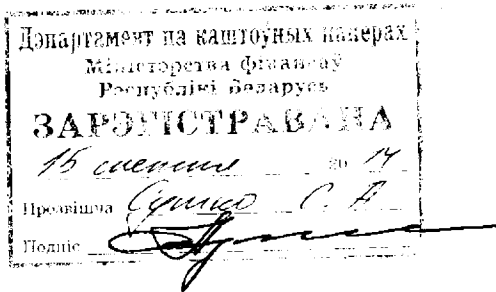 Дэпартамент па каштоўных паперах
Міністэрства фінансаў
Рэспублікі Беларусь
ЗАРЭГІСТРАВАНА
15 20 14
Прозвішча Сушко С. А
Подпіс